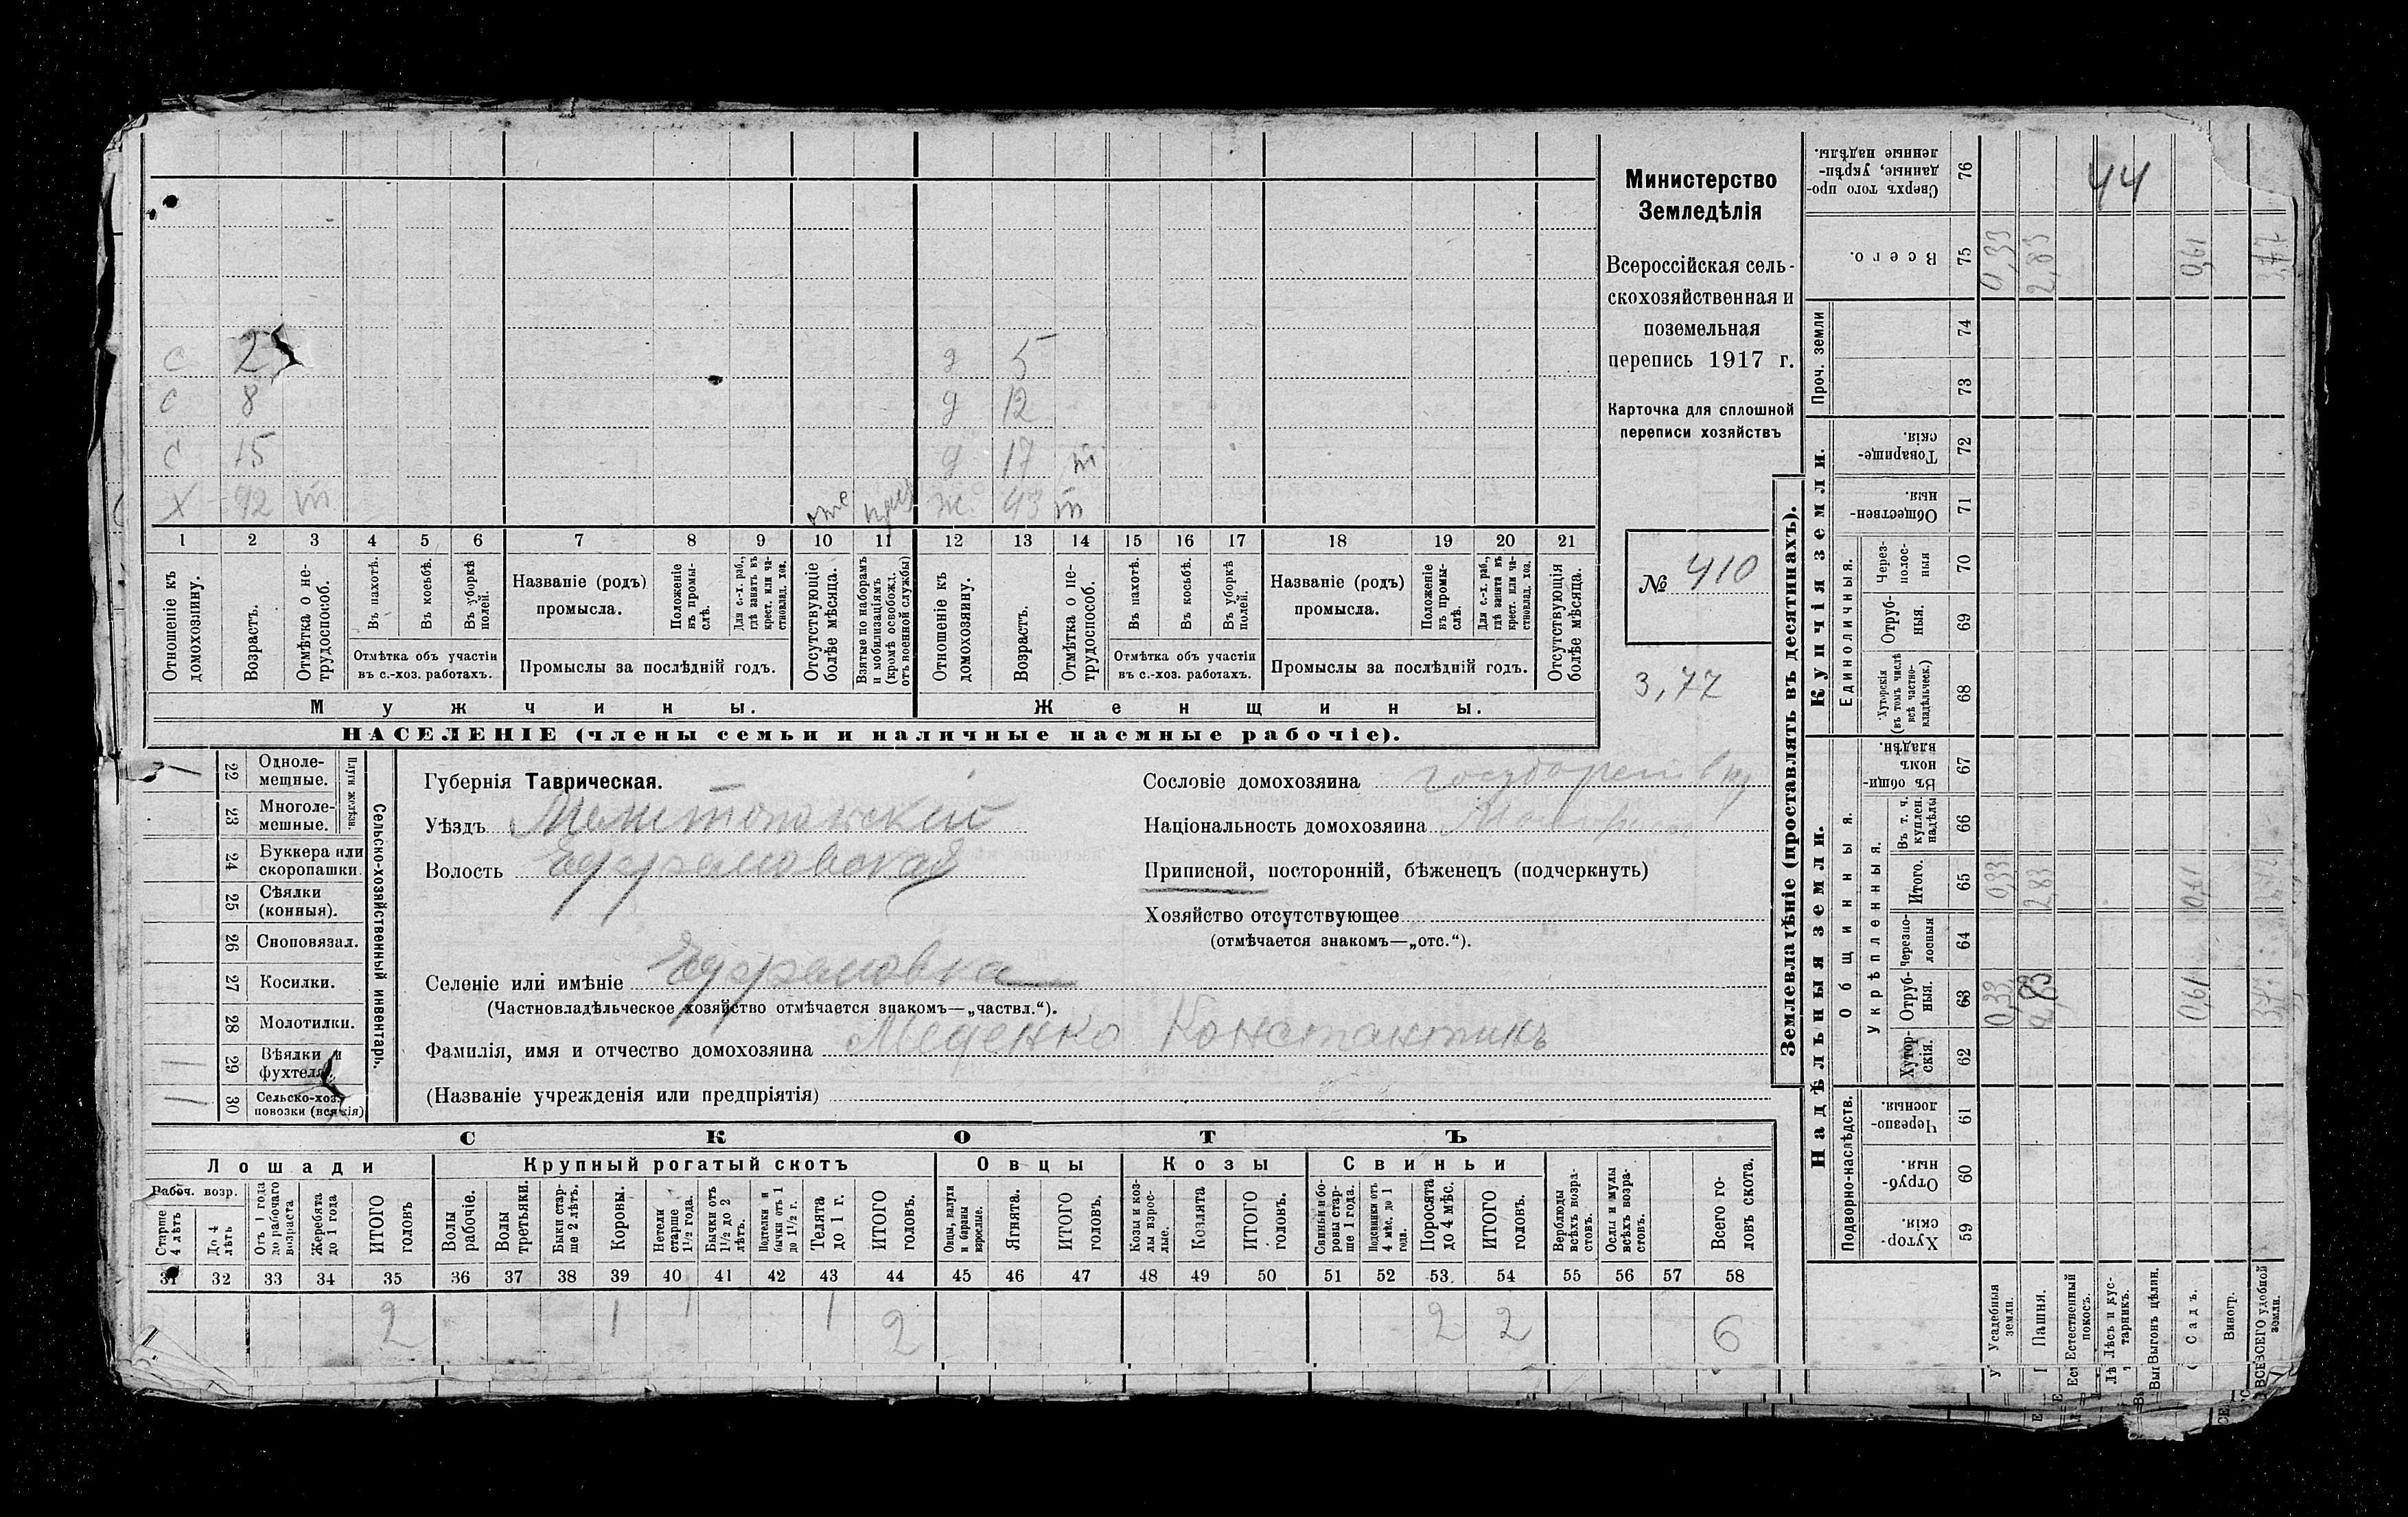 с 25 д 5
с 8 д 12
с 15 д 17 т
Х 42 т отс ж. 43 т
1 2 3 4 5 6 7 8 9 10 11 12 13 14 15 16 17 18 19 20 21
Отношеніе къ домохозяину.
Возрастъ.
Отмѣтка о нетрудоспособ.
Въ пахотѣ.
Въ косьбѣ.
Въ уборкѣ полей.
Отмѣтка объ участіи
въ с.-хоз. работахъ.
Названіе (родъ)
промысла.
Положеніе въ промыслѣ.
Для с.-х. раб., гдѣ занятъ въ крест. или частновлад. хоз.
Промыслы за послѣдній годъ.
Отсутствующіе болѣе мѣсяца.
Взятые по наборамъ и мобилизаціямъ (кромѣ освобожд. отъ военной службы)
Отношеніе къ домохозяину.
Возрастъ.
Отмѣтка о нетрудоспособ.
Въ пахотѣ.
Въ косьбѣ.
Въ уборкѣ полей.
Отмѣтка объ участіи
въ с.-хоз. работахъ.
Названіе (родъ)
промысла.
Положеніе въ промыслѣ.
Для с.-х. раб., гдѣ занята въ крест. или частновлад. хоз.
Промыслы за послѣдній годъ.
Отсутствующія болѣе мѣсяца.
Мужчины. Женщины.
НАСЕЛЕНІЕ (члены семьи и наличные наемные рабочіе).
Министерство
Земледѣлія
Всероссійская сель-
скохозяйственная и
поземельная
перепись 1917 г.
Карточка для сплошной
переписи хозяйствъ
№ 410
3,77
Сельско-хозяйственный инвентарь.
Плуги желѣзн.
22 Однолемешные.
23 Многолемешные.
24 Буккера или скоропашки.
25 Сѣялки (конныя).
26 Сноповязал.
27 Косилки.
28 Молотилки.
1 29 Вѣялки и фухтеля.
1 30 Сельско-хоз. повозки (всякія)
Губернія Таврическая.
Уѣздъ Мелитопольскій
Волость Ефремовская
Селеніе или имѣніе Ефремовка
(Частновладѣльческое хозяйство отмѣчается знакомъ—„частвл.“).
Фамилія, имя и отчество домохозяина Меденко Константинъ
(Названіе учрежденія или предпріятія)
Сословіе домохозяина
Національность домохозяина
Приписной, посторонній, бѣженецъ (подчеркнуть)
Хозяйство отсутствующее
(отмѣчается знакомъ—„отс.“).
СКОТЪ
Лошади Крупный рогатый скотъ Овцы Козы Свиньи
Рабоч. возр.
Старше 4 лѣтъ
До 4 лѣтъ
Отъ 1 года до рабочаго возраста
Жеребята до 1 года
ИТОГО головъ
Волы рабочіе.
Волы третьяки.
Быки старше 2 лѣтъ.
Коровы.
Нетели старше 1½ года.
Бычки отъ 1½ до 2 лѣтъ.
Подтелки и бычки отъ 1 до 1½ г.
Телята до 1 г.
ИТОГО головъ.
Овцы, валухи и бараны взрослые.
Ягнята.
ИТОГО головъ.
Козы и козлы взрослые.
Козлята
ИТОГО головъ.
Свиньи и боровы старше 1 года.
Подсвинки отъ 4 мѣс. до 1 года.
Поросята до 4 мѣс.
ИТОГО головъ.
Верблюды всѣхъ возрастовъ.
Ослы и мулы всѣхъ возрастовъ.
Всего головъ скота.
31 32 33 34 35 36 37 38 39 40 41 42 43 44 45 46 47 48 49 50 51 52 53 54 55 56 57 58
2 1 1 1 2 2 2 6
Землевладѣніе (проставлять въ десятинахъ).
Купчія земли.
Надѣльныя земли.
Сверхъ того проданные, укрѣпленные надѣлы. 76 44
Всего. 75 0,33 2,83 0,61 3,77
Проч. земли 74
73
Товарищескія. 72
Общественныя. 71
Единоличныя.
Черезполосныя 70
Отрубныя. 69
Хуторскія (въ томъ числѣ всѣ частновладѣльческ.) 68
Общинныя.
Въ общинномъ владѣн. 67
Укрѣпленныя.
Въ т. ч. куплен. надѣлы 66
Итого. 65 0,33 2,83 0,61
Черезполосныя 64
Отрубныя. 63 0,33 2,83 0,61
Хуторскія. 62
Подворно-наслѣдств.
Черезполосныя. 61
Отрубныя. 60
Хуторскія. 59
Усадебныя земли.
Пашня.
Естественный покосъ.
Лѣсъ и кустарникъ.
Выгонъ цѣлин.
Садъ.
Виногр.
ВСЕГО удобной земли.